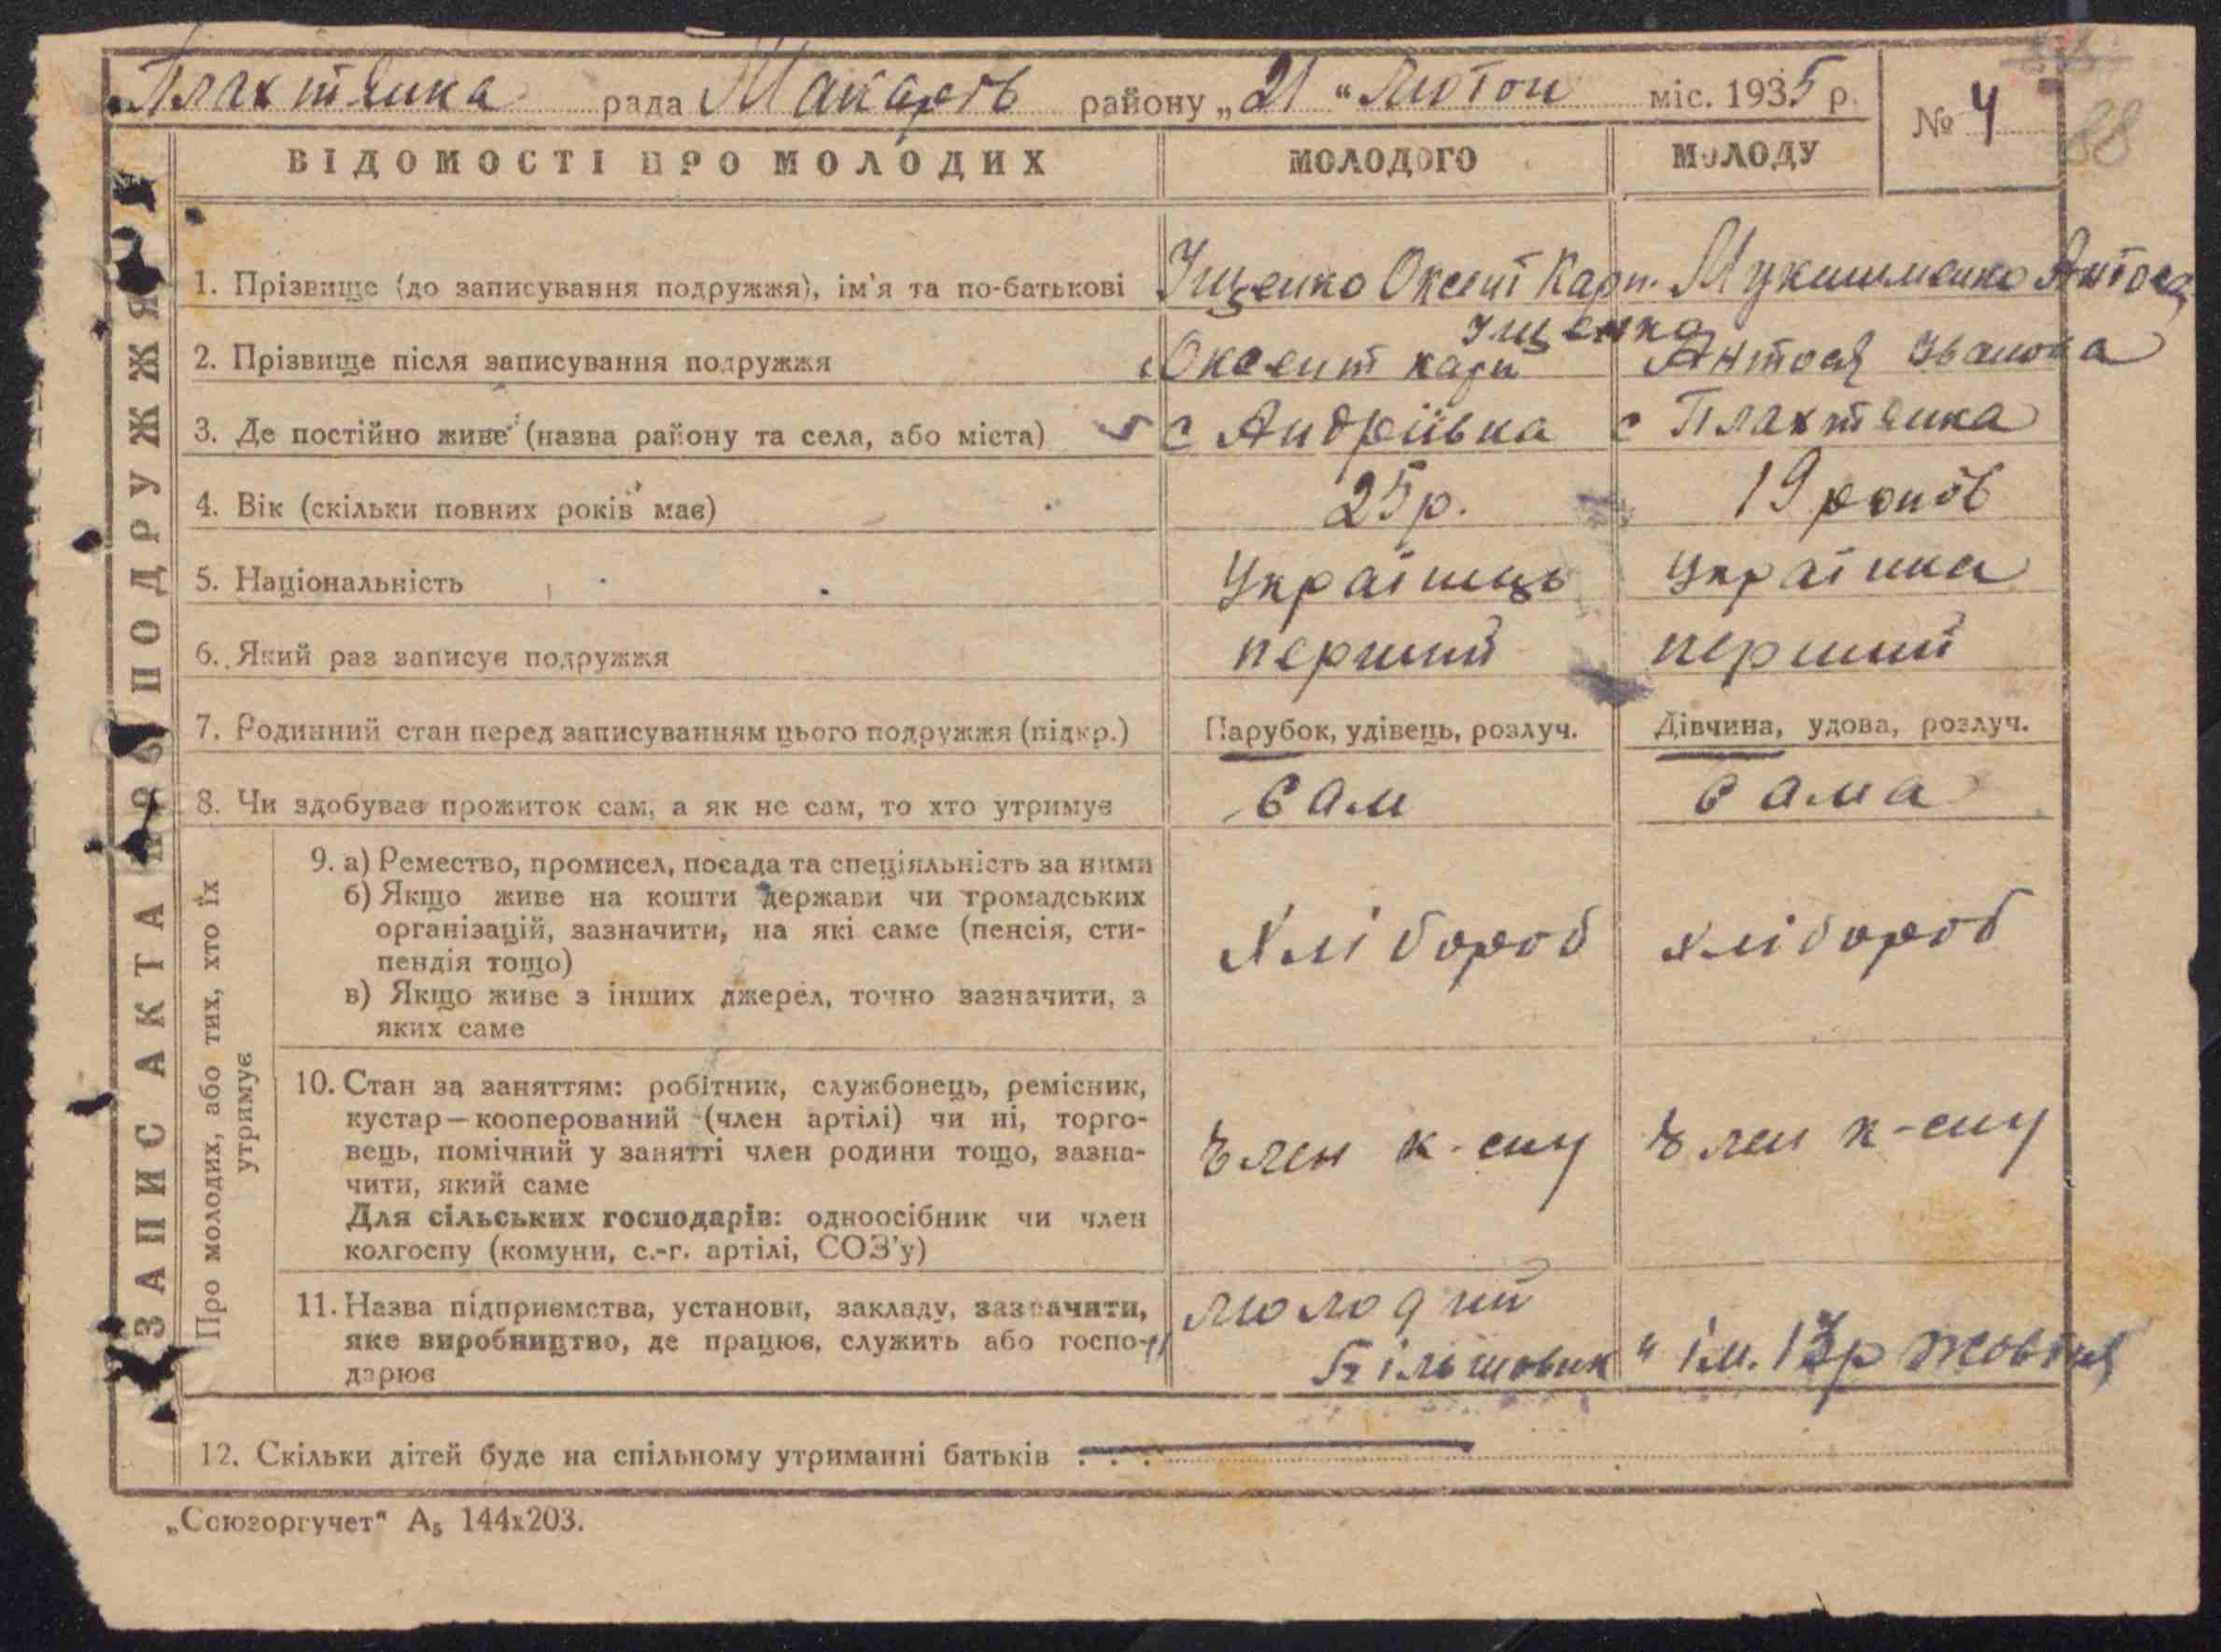 Плахтянка рада Макарів району „21“ Лютого міс. 1935 р.
№ 4
88
ВІДОМОСТІ ПРО МОЛОДИХ
МОЛОДОГО
МОЛОДУ
ЗАПИС АКТА ПРО ПОДРУЖЖЯ
1. Прізвище (до записування подружжя), ім'я та по-батькові
Іщенко Оксент Карп.
Антося
2. Прізвище після записування подружжя
Іщенко
Оксент карп
Антося Іванова
3. Де постійно живе (назва району та села, або міста)
с Андріївка
с Плахтянка
4. Вік (скільки повних років має)
25 р.
19 років
5. Національність
Українець
Українка
6. Який раз записує подружжя
перший
перший
7. Родинний стан перед записуванням цього подружжя (підкр.)
Парубок, удівець, розлуч.
Дівчина, удова, розлуч.
8. Чи здобуває прожиток сам, а як не сам, то хто утримує
Сам
Сама
Про молодих, або тих, хто їх
утримує
9. а) Ремество, промисел, посада та спеціяльність за ними
б) Якщо живе на кошти держави чи громадських
організацій, зазначити, на які саме (пенсія, сти-
пендія тощо)
в) Якщо живе з інших джерел, точно зазначити, з
яких саме
Хлібороб
хлібороб
10. Стан за заняттям: робітник, службовець, ремісник,
кустар—кооперований (член артілі) чи ні, торго-
вець, помічний у занятті член родини тощо, зазна-
чити, який саме
Для сільських господарів: одноосібник чи член
колгоспу (комуни, с.-г. артілі, СОЗ'у)
Член к-спу
Член к-спу
11. Назва підприємства, установи, закладу, зазначити,
яке виробництво, де працює, служить або госпо-
дарює
„молодий
Більшовик“
ім. 13р жовтня
12. Скільки дітей буде на спільному утриманні батьків . . .
„Союзоргучет“ А₅ 144х203.